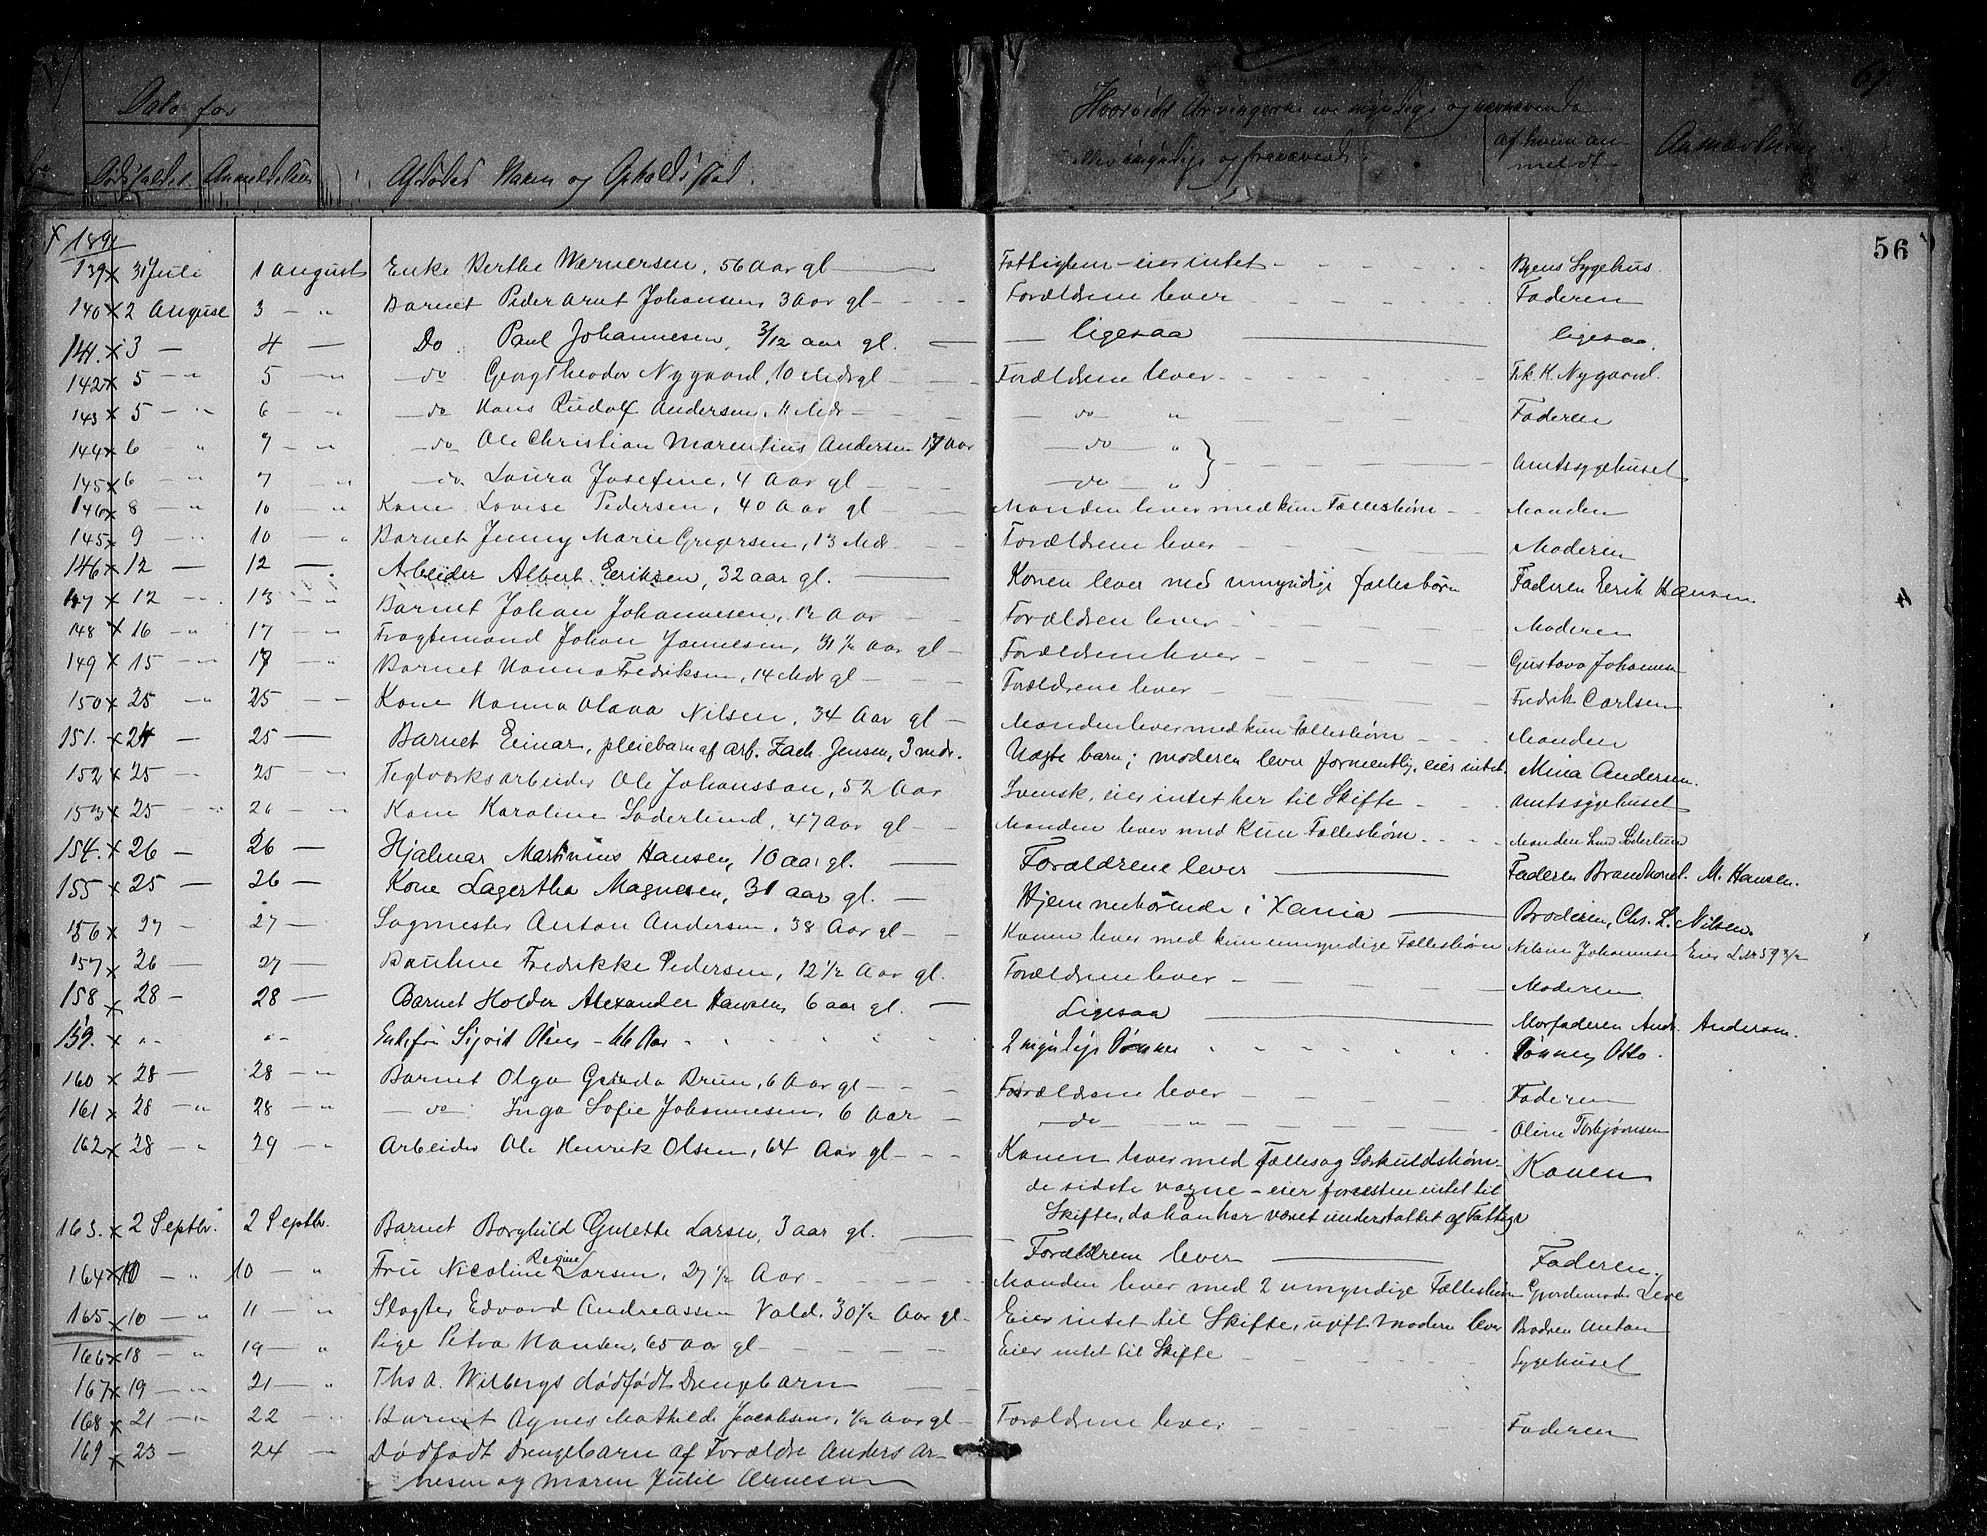 Dato for
Dødsfaldet. Anmeldelsen
Afdødes Navn og Opholdssted.
Hvorvidt Arvingerne ere myndige og nærværende
eller umyndige og fraværende.
af hvem an-
meldt
Anmærkning
56
1891
139 x 31 Juli 1 august Enke Berthe Wernersen, 56 Aar gl — Fattiglem - eier intet - Byens Sygehus.
140 x 2 August 3 — " Barnet Peder Arnt Johansen 3 Aar gl - Forældrene lever - Faderen
141. x 3 — 4 — Do Paul Johannesen, 3/12 aar gl. — ligesaa — ligesaa.
142 x 5 — " 5 — " — do Georg Theodor Nygaard, 10 Mdr gl - Forældrene lever - Frk. K. Nygaard.
143 x 5 — " 6 — " — do Hans Rudolf Andersen, 11 Mdr — do " Faderen
144 x 6 " 7 — " — do Ole Christian Marentius Andersen 17 Aar — do "
145 x 6 " 7 " — do Laura Josefine, 4 Aar gl — do " Amtssygehuset
146 x 8 — " 10 — " Kone Lovise Pedersen, 40 Aar gl — Manden lever med kun Fællesbørn — Manden
145 x 9 — " 10 — " Barnet Jenny Marie Gregersen, 13 Mdr — Forældrene lever — Moderen
146 x 12 — 12 — Arbeider Albert Eriksen, 32 aar gl. — Konen lever med umyndige fællesbørn Faderen Eerik Hansen
147 x 12 — " 13 — " Barnet Johan Johannesen, 12 Aar — Forældren lever — Moderen
148 x 16 — " 17 — " Fragtemand Johan Jannesen, 31 1/2 Aar gl — Forældrene lever — Gustava Johannesen
149 x 15 — " 17 — " Barnet Hanna Fredriksen, 14 Mdr gl — Forældrene lever — Fredrik Carlsen
150 x 25 " 25 — " Kone Hanna Olava Nilsen, 34 Aar gl — Manden lever med kun Fællesbørn — Manden
151. x 24 — 25 — Barnet Einar, pleiebarn af Arb. Zach. Jensen, 3 mdr. Uægte barn; moderen lever formentlig, eier intet. Mina Andersen.
152 x 25 — " 25 — " Teglværksarbeider Ole Johansson, 52 Aar Svensk, eier intet her til Skifte — Amtssygehuset
153 x 25 — " 26 — " Kone Karoline Søderlund, 47 Aar gl — Manden lever med Kun Fællesbørn — Manden Søderlund
154. x 26 — 26 — Hjalmar Martinius Hansen, 10 aar gl. — Forældrene lever — Faderen Brandkonst. M. Hansen.
155 x 25 — 26 — Kone Lagertha Magnesen, 31 aar gl. — Hjemmehørende i Xania — Broderen, Chr. L. Nilsen.
156 x 27 — 27 — Sagmester Anton Andersen, 38 Aar gl — Konen lever med kun umyndige Fællesbørn Nilsine Johannesen Eier
157 x 26 — 27 — Pauline Fredrikke Pedersen, 12 1/2 Aar gl. Forældrene lever — Moderen
158 x 28 — 28 — Barnet Holder Alexander Hansen, 6 aar gl. — Ligesaa — Morfaderen Andr. Andersen.
159. x " " " " Enkefru Sigrid Olsen - 66 Aar 2 myndige Sønner Sønnen Otto.
160 x 28 — 28 — " Barnet Olga Gerda Brun, 6 Aar gl — Forældrene lever — Faderen
161 x 28 — " 28 — " — do Inga Sofie Johannesen, 6 Aar — do " Oline Torbjørnsen
162 x 28 — " 29 — " Arbeider Ole Henrik Olsen, 64 Aar gl — Konen lever med Fælles og Særkuldsbørn
de sidste vogne - eier foresten intet til Konen
Skiftes, da han har været understøttet af Fattige
163. x 2 Septbr. 2 Septbr. Barnet Borghild Gulette Larsen, 3 aar gl. — Forældrene lever — Faderen.
164 x 10 — " 10 — " Fru Nicoline Regine Larsen, 27 1/2 Aar — Manden lever med 2 umyndige Fællesbørn Gjordemoder Leve
165 x 10 — " 11 — " Slagter Edvard Andreassen Vold, 30 1/2 Aar gl — Eier intet til Skifte, ugift Moderen lever Brodren Anton
166 x 18 — " 19 — " Pige Petra Hansen, 65 Aar gl — Eier intet til Skifte — Sygehuset
167 x 19 — " 21 — " Ths A. Wilbergs dødfødt Drengebarn —
168 x 21 — " 22 — " Barnet Agnes Mathilde Jacobsen, 1/2 Aar gl — Forældrene lever — Faderen
169 x 23 — 24 — Dødfødt Drengebarn af Forældre Anders Ar-
nesen og Maren Julie Arnesen